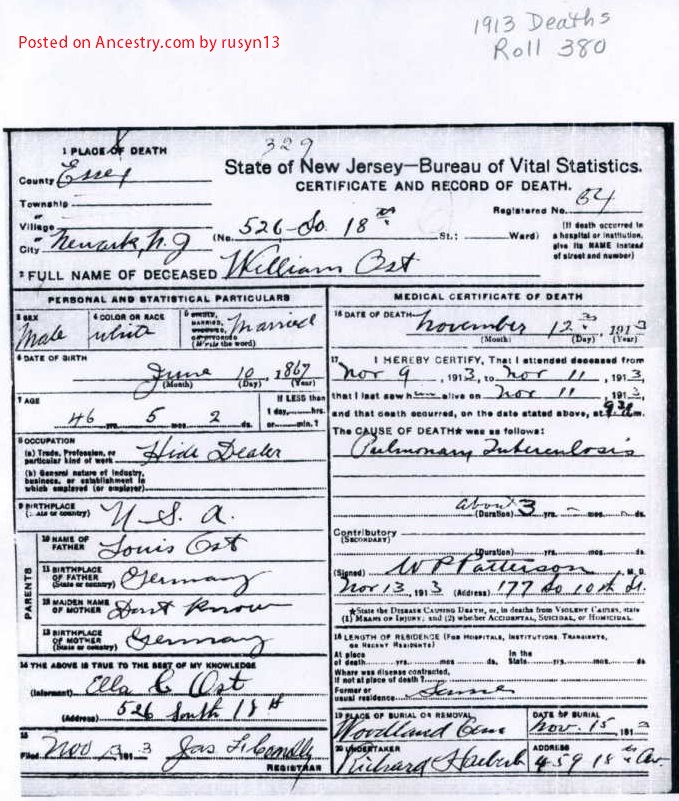 1913 Deaths
Roll 380
Posted on Ancestry.com by rusyn13
329
1 PLACE OF DEATH
County Essex
State of New Jersey—Bureau of Vital Statistics.
CERTIFICATE AND RECORD OF DEATH.
Township
or
Village
or
City Newark, N. J.
Registered No. 64
(No. 526 So. 18th St.; Ward)
(If death occurred in
a hospital or institution,
give its NAME instead
of street and number)
2 FULL NAME OF DECEASED William Ost
PERSONAL AND STATISTICAL PARTICULARS
3 SEX
Male
4 COLOR OR RACE
White
5 SINGLE,
MARRIED,
WIDOWED,
OR DIVORCED
(Write the word)
Married
6 DATE OF BIRTH
June 10, 1867
(Month) (Day) (Year)
7 AGE
46 yrs. 5 mos. 2 ds.
If LESS than
1 day,....hrs.
or......min.?
8 OCCUPATION
(a) Trade, Profession, or
particular kind of work
Hide Dealer
(b) General nature of industry,
business, or establishment in
which employed (or employer)
9 BIRTHPLACE
(State or country)
U. S. A.
PARENTS
10 NAME OF
FATHER
Louis Ost
11 BIRTHPLACE
OF FATHER
(State or country)
Germany
12 MAIDEN NAME
OF MOTHER
Dont Know
13 BIRTHPLACE
OF MOTHER
(State or country)
Germany
14 THE ABOVE IS TRUE TO THE BEST OF MY KNOWLEDGE
(Informant) Ella C Ost
(Address) 526 South 18 st
15
Filed Nov 13 1913 Jas
REGISTRAR
MEDICAL CERTIFICATE OF DEATH
16 DATE OF DEATH
November 12, 1913
(Month) (Day) (Year)
17 I HEREBY CERTIFY, That I attended deceased from
Nov 9, 1913, to Nov 11, 1913,
that I last saw him alive on Nov 11, 1913,
and that death occurred, on the date stated above, at m.
The CAUSE OF DEATH★ was as follows:
Pulmonary Tuberculosis
about 3
(Duration) yrs. mos. ds.
Contributory
(SECONDARY)
(Duration) yrs. mos. ds.
(Signed) W P Patterson, M. D.
Nov 13, 1913 (Address) 177 So 10th St.
★State the DISEASE CAUSING DEATH, or, in deaths from VIOLENT CAUSES, state
(1) MEANS OF INJURY; and (2) whether ACCIDENTAL, SUICIDAL, or HOMICIDAL.
18 LENGTH OF RESIDENCE (FOR HOSPITALS, INSTITUTIONS, TRANSIENTS,
OR RECENT RESIDENTS)
At place
of death yrs. mos. ds.
In the
State yrs. mos. ds.
Where was disease contracted,
if not at place of death?
Former or
usual residence
Same
19 PLACE OF BURIAL OR REMOVAL
Woodland Cem
DATE OF BURIAL
Nov. 15, 1913
20 UNDERTAKER
Richard
ADDRESS
459 18th Av.